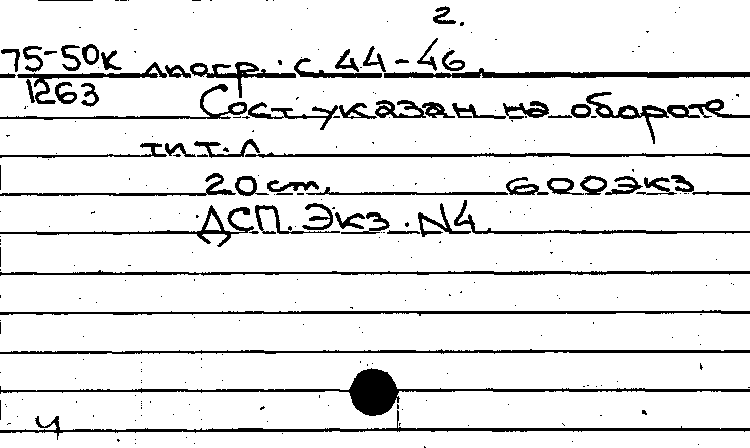 2.
75-50к лиогр.: с. 44-46.
1263 Сост. указан на обороте
тит. л.
20 cm. 600экз
ДСП. Экз. N4.
ч